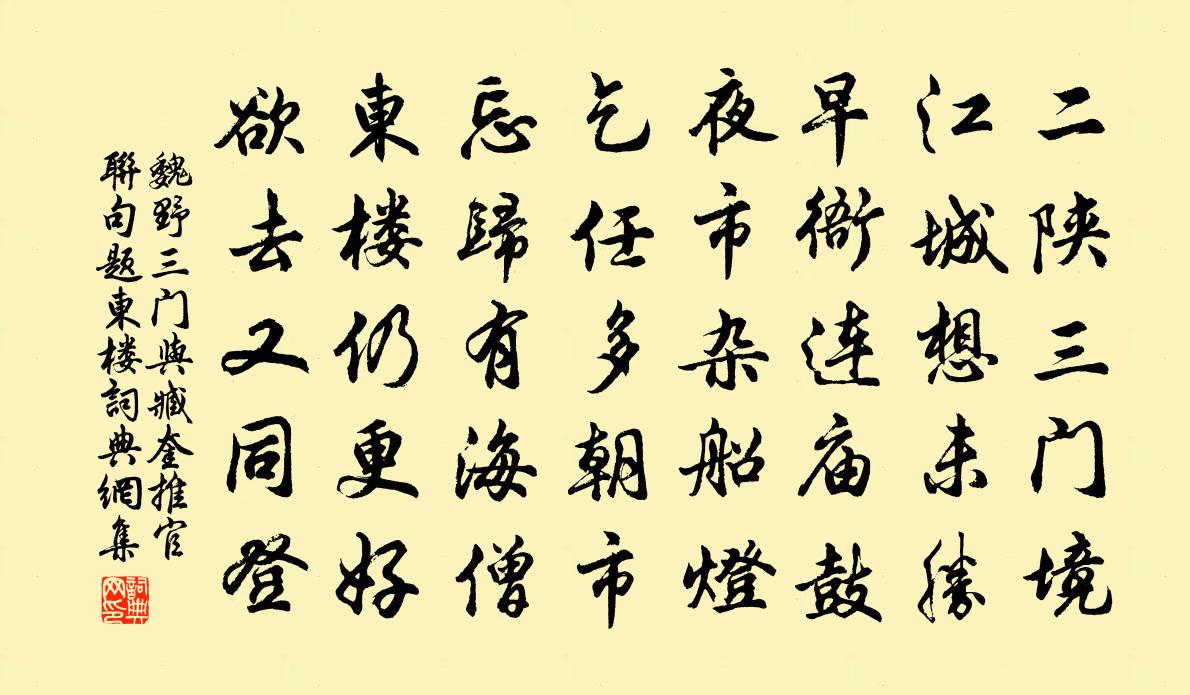 二陕三门境
江城想未勝
早衙连庙鼓
夜市杂船燈
乞任多朝市
忘歸有海僧
東楼仍更好
欲去又同登
魏野三门與臧奎推官
聯句题東楼詞典網集